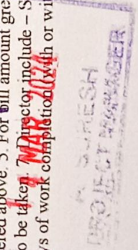 ered above. 5. For bill amount gre
o be taken. 7. Director include – S
MAR 2024
ys of work completion (with or wi
SURESH
PROJECT MANAGER